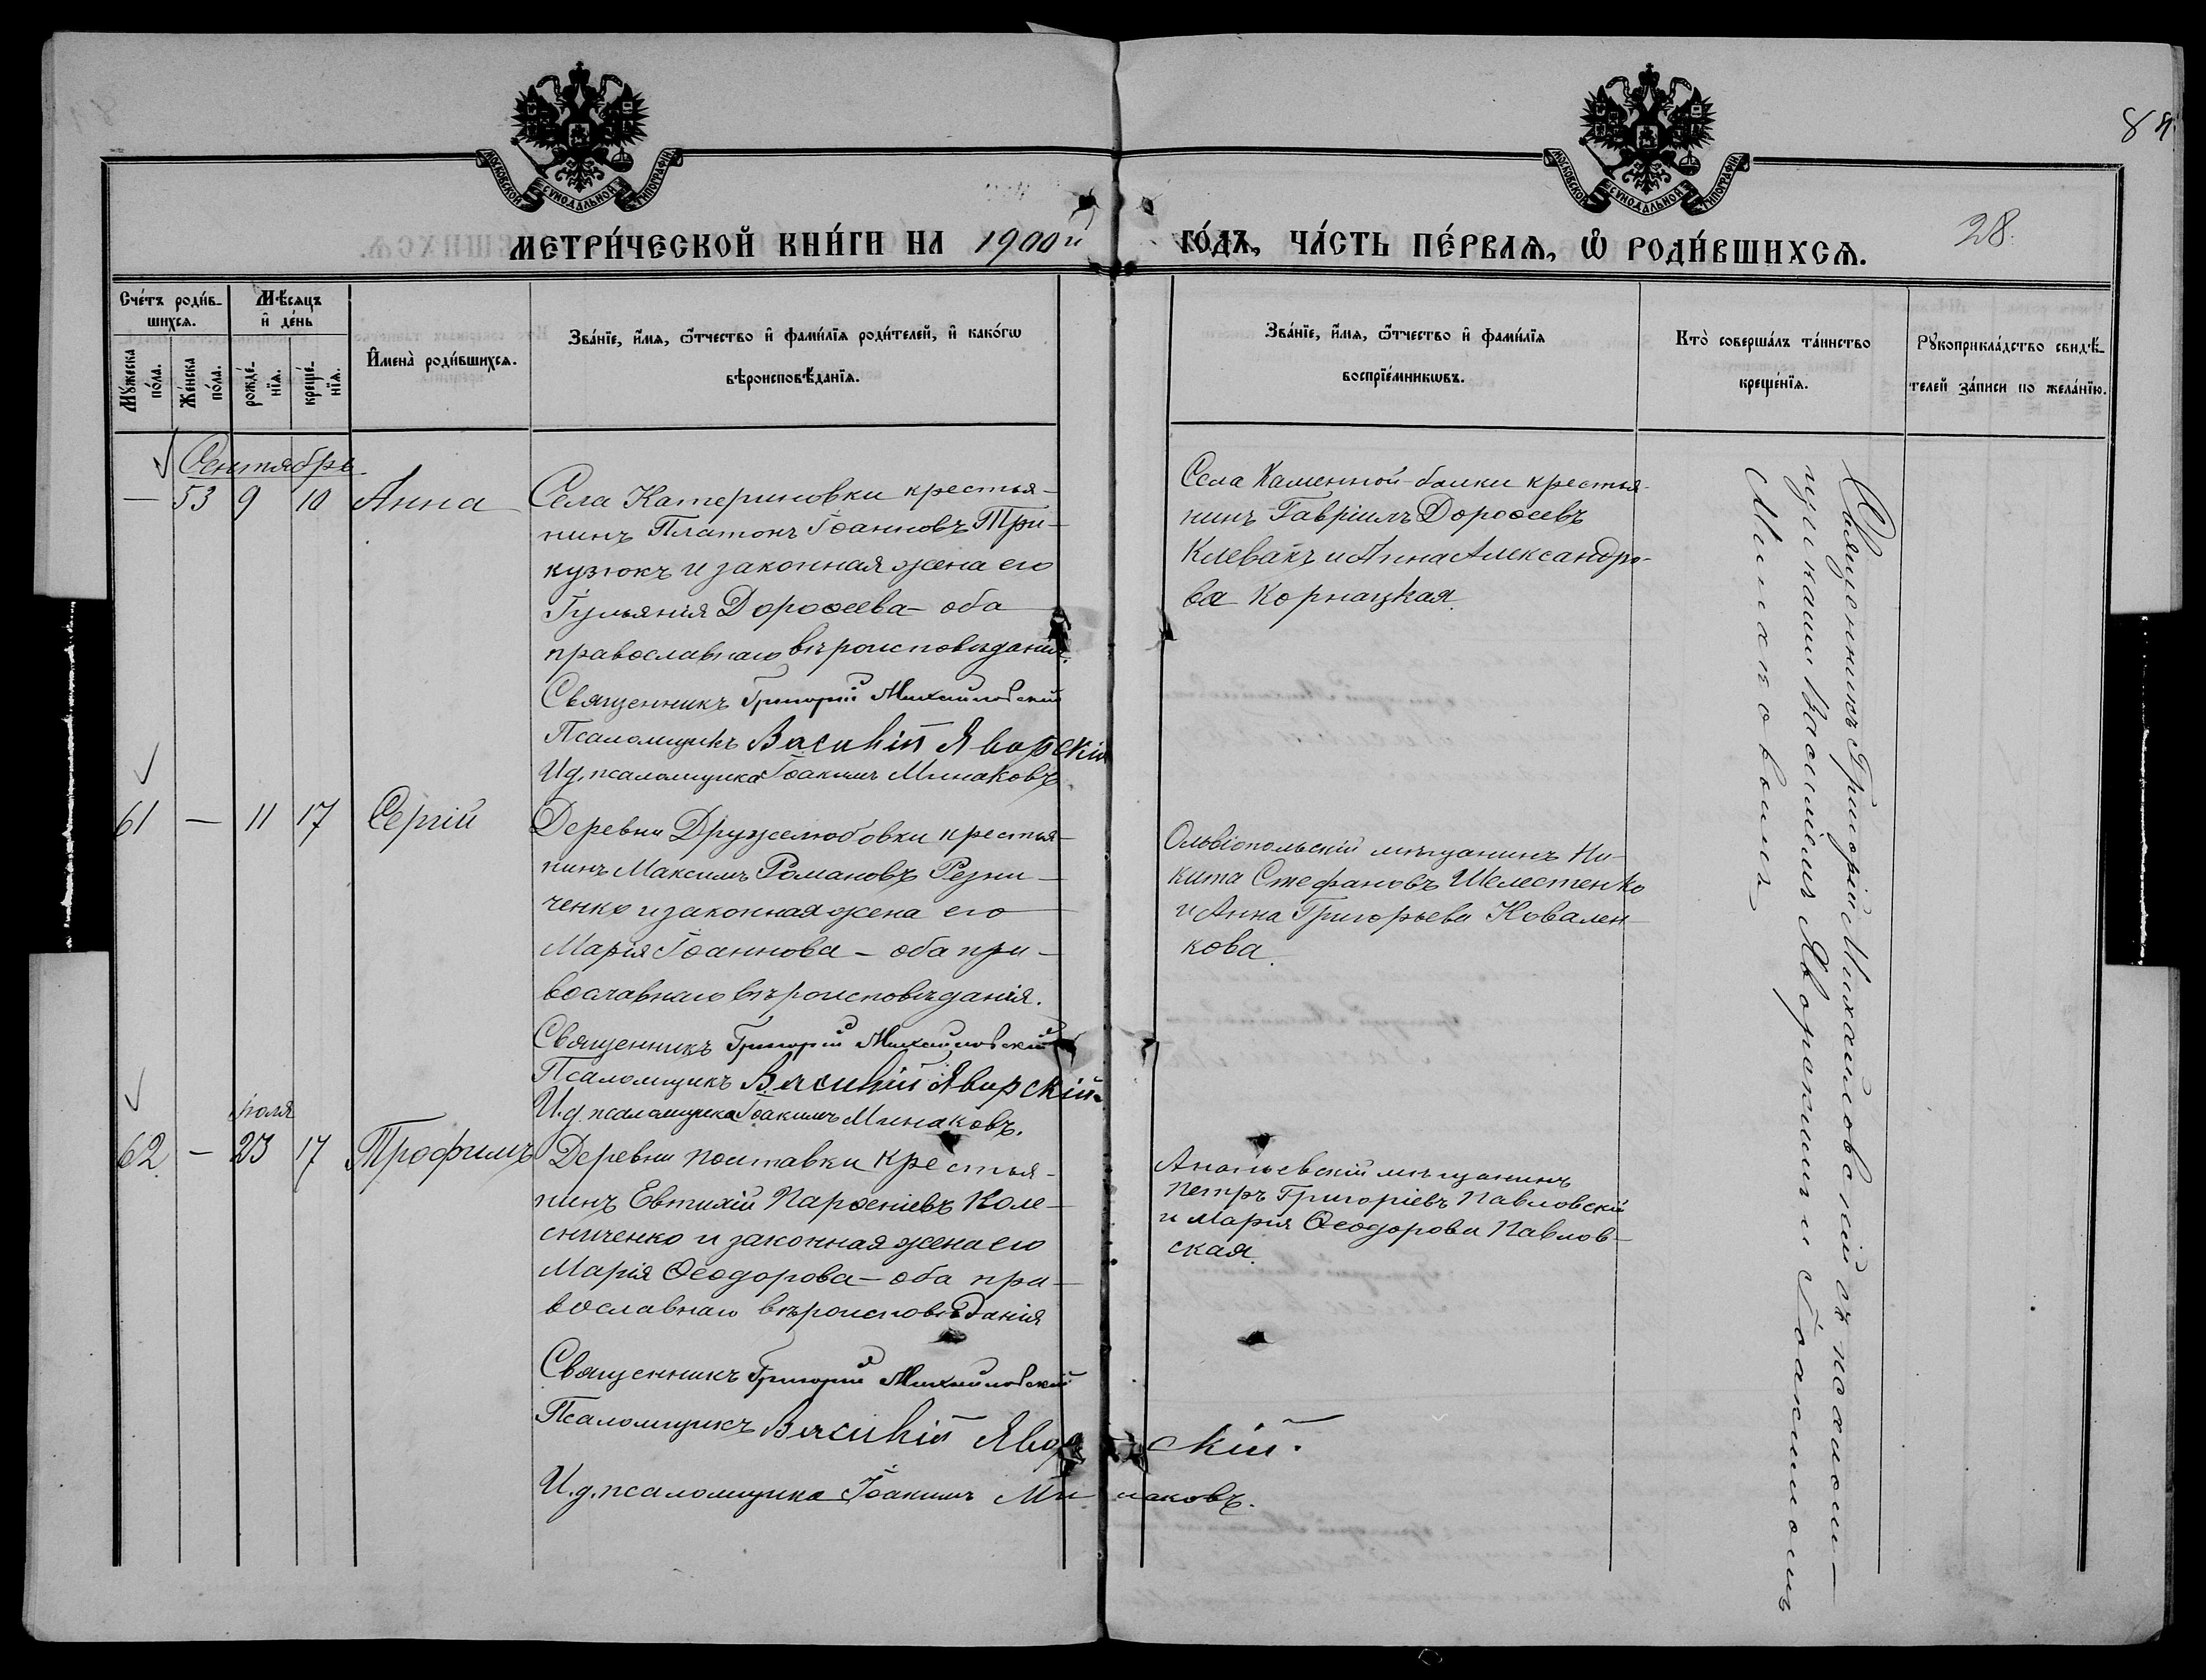 84
28.
МОСКОВСКОЙ СѴНОДАЛЬНОЙ ТИПОГРАФІИ
МОСКОВСКОЙ СѴНОДАЛЬНОЙ ТИПОГРАФІИ
МЕТРИ́ЧЕСКОЙ КНИ́ГИ НА 1900й ГО́ДЪ, ЧА́СТЬ ПЕ́РВАѦ, Ѡ҆ РОДИ́ВШИХСѦ.
Сче́тъ роди́в-
шихсѧ.
Мѣ́сѧцъ
и҆ де́нь
Мꙋ́жеска
по́ла.
Же́нска
по́ла.
рожде́-
нїѧ.
креще́-
нїѧ.
И҆мена̀ роди́вшихсѧ.
Зва́нїе, и҆́мѧ, ѻ҆́тчество и҆ фами́лїѧ роди́телей, и҆ како́гѡ
вѣроисповѣ́данїѧ.
Зва́нїе, и҆́мѧ, ѻ҆́тчество и҆ фами́лїѧ
воспрїе́мникѡвъ.
Кто̀ соверша́лъ та́инство
креще́нїѧ.
Рꙋкоприкла́дство свидѣ́-
телей за́писи по жела́нїю.
Сентябрь
— 53 9 10 Анна
Села Катериновки крестья-
нинъ Платонъ Іоанновъ Три-
кузюкъ и законная жена его
Іульянія Дороѳеева — оба
православнаго вѣроисповѣданія.
Священникъ Григорій Михайловскій
Псаломщикъ Василій Яворскій
И.д. псаломщика Іоакимъ Минаковъ
Села Каменной-балки крестья-
нинъ Гавріилъ Дороѳеевъ
Клевакъ и Анна Александро-
ва Корнацкая.
61 — 11 17 Сергій
Деревни Дружелюбовки крестья-
нинъ Максимъ Романовъ Резни-
ченко и законная жена его
Марія Іоаннова — оба пра-
вославнаго вѣроисповѣданія.
Священникъ Григорій Михайловскій
Псаломщикъ Василій Яворскій.
И.д. псаломщика Іоакимъ Минаковъ.
Ольвіопольскій мѣщанинъ Ни-
кита Стефановъ Шелестенко
и Анна Григорьева Ковален-
кова.
62 — 23 17 Трофимъ
Деревни Поштавки крестья-
нинъ Евтихій Парѳеніевъ Коле-
сниченко и законная жена его
Марія Ѳеодорова — оба пра-
вославнаго вѣроисповѣданія
Священникъ Григорій Михайловскій
Псаломщикъ Василій Яворскій.
И.д. псаломщика Іоакимъ Минаковъ.
Ананьевскій мѣщанинъ
Петръ Григоріевъ Павловскій
и Марія Ѳеодорова Павлов-
ская.
Священникъ Григорій Михайловскій съ псалом-
щиками Василіемъ Яворскимъ и Іоакимомъ
Минаковымъ